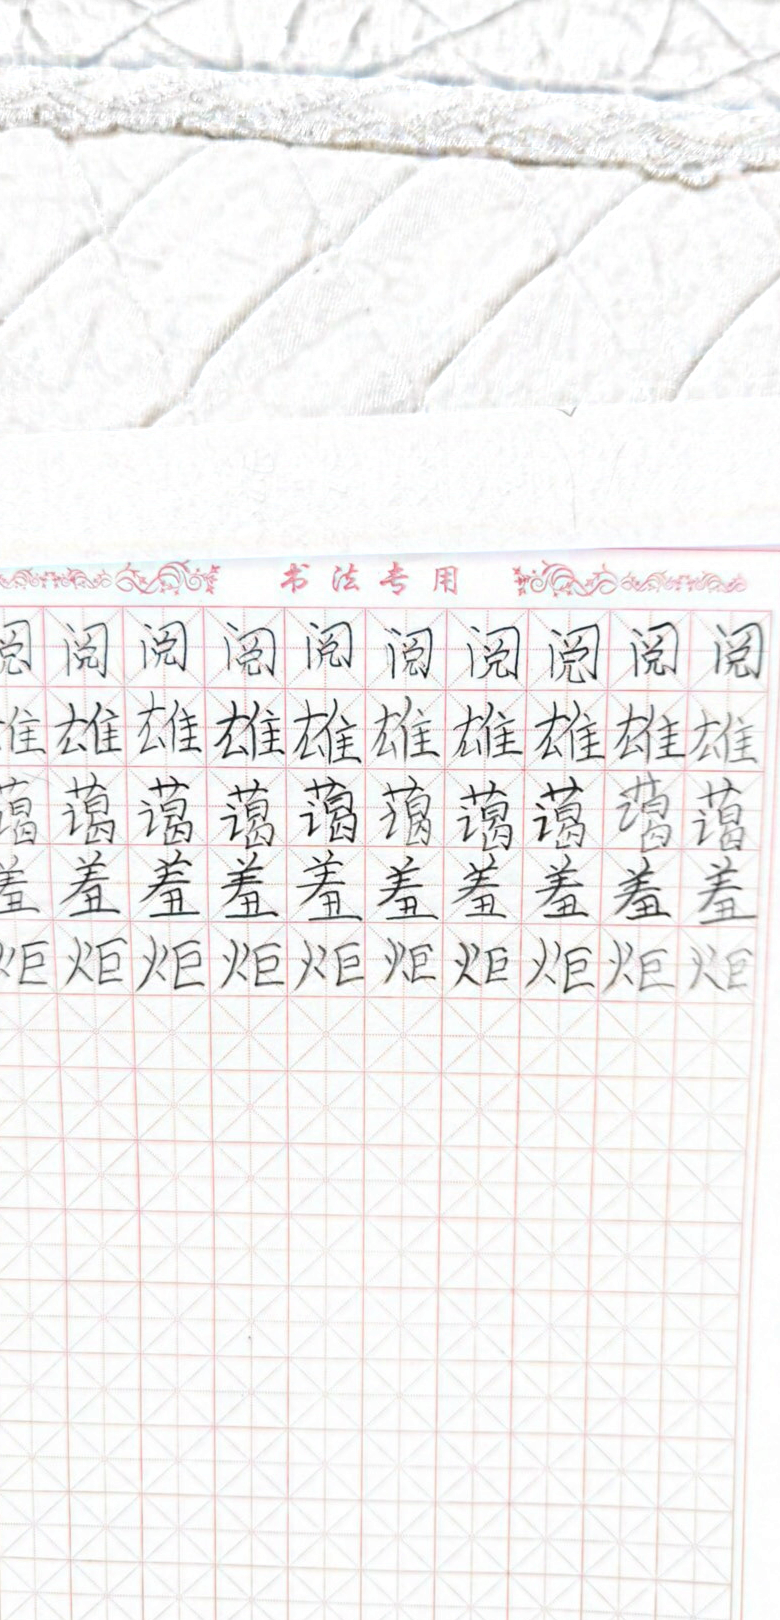 书法专用
阅阅阅阅阅阅阅阅阅阅
雄雄雄雄雄雄雄雄雄雄
蔼蔼蔼蔼蔼蔼蔼蔼蔼蔼
羞羞羞羞羞羞羞羞羞羞
炬炬炬炬炬炬炬炬炬炬